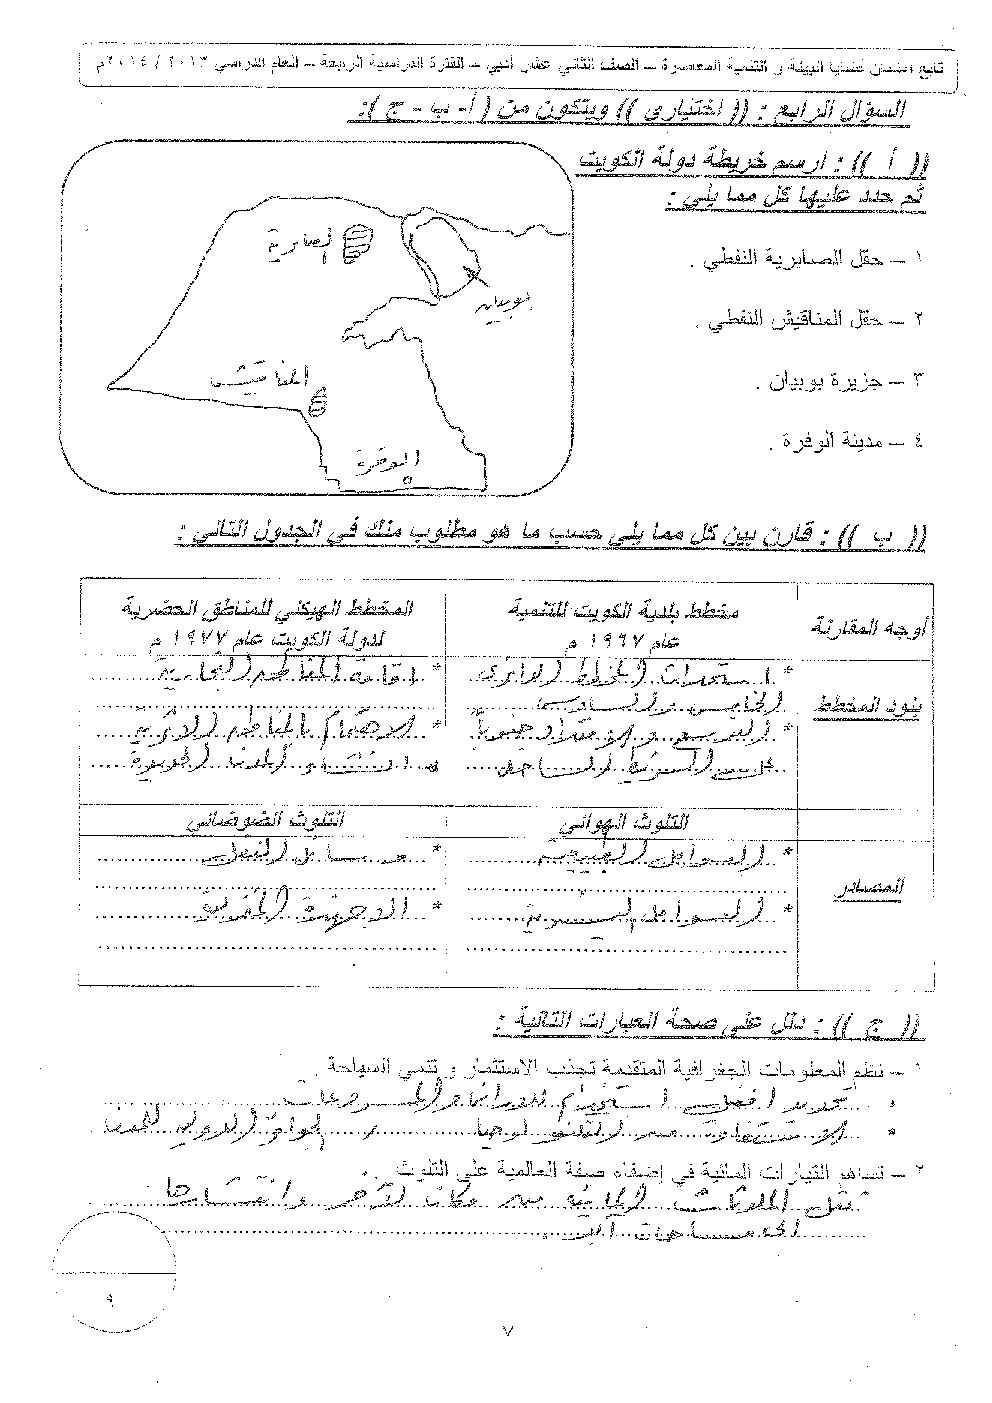 تابع امتحان قضايا البيئة و التنمية المعاصرة – الصف الثاني عشر أدبي – الفترة الدراسية الرابعة – العام الدراسي ٢٠١٣ / ٢٠١٤م
السؤال الرابع : (( اختياري )) ويتكون من ( أ - ب - ج ):
(( أ )) : ارسم خريطة دولة الكويت
ثم حدد عليها كل مما يلي :
١ – حقل الصابرية النفطي .
٢ – حقل المناقيش النفطي .
٣ – جزيرة بوبيان .
٤ – مدينة الوفرة .
الصابرية
بوبيان
المناقيش
الوفرة
(( ب )) : قارن بين كل مما يلي حسب ما هو مطلوب منك في الجدول التالي :
أوجه المقارنة
مخطط بلدية الكويت للتنمية
عام ١٩٦٧ م
المخطط الهيكلي للمناطق الحضرية
لدولة الكويت عام ١٩٧٧ م
بنود المخطط
* استحداث المخطط الدائري
الخامس والسادس
* التوسع والامتداد جنوباً
على الشريط الساحلي
* اقامة المناطق التجارية
* الاهتمام بالمناطق الاثرية
* انشاء المدن الجديدة
المصادر
التلوث الهوائي
التلوث الضوضائي
* العوامل الطبيعية
* العوامل البشرية
* وسائل النقل
* الاجهزة المنزلية
(( ج )) : دلل على صحة العبارات التالية :
١ – نظم المعلومات الجغرافية المتقدمة تجذب الاستثمار و تنمي السياحة .
* تحديد افضل استخدام للاراضي والمشروعات
* الاستفادة من التكنولوجيا
٢ – تساهم التيارات المائية في إضفاء صفة العالمية على التلوث .
نقل الملوثات المائية من مكان لآخر وانتشارها
الى مساحات أكبر .
٩
٧